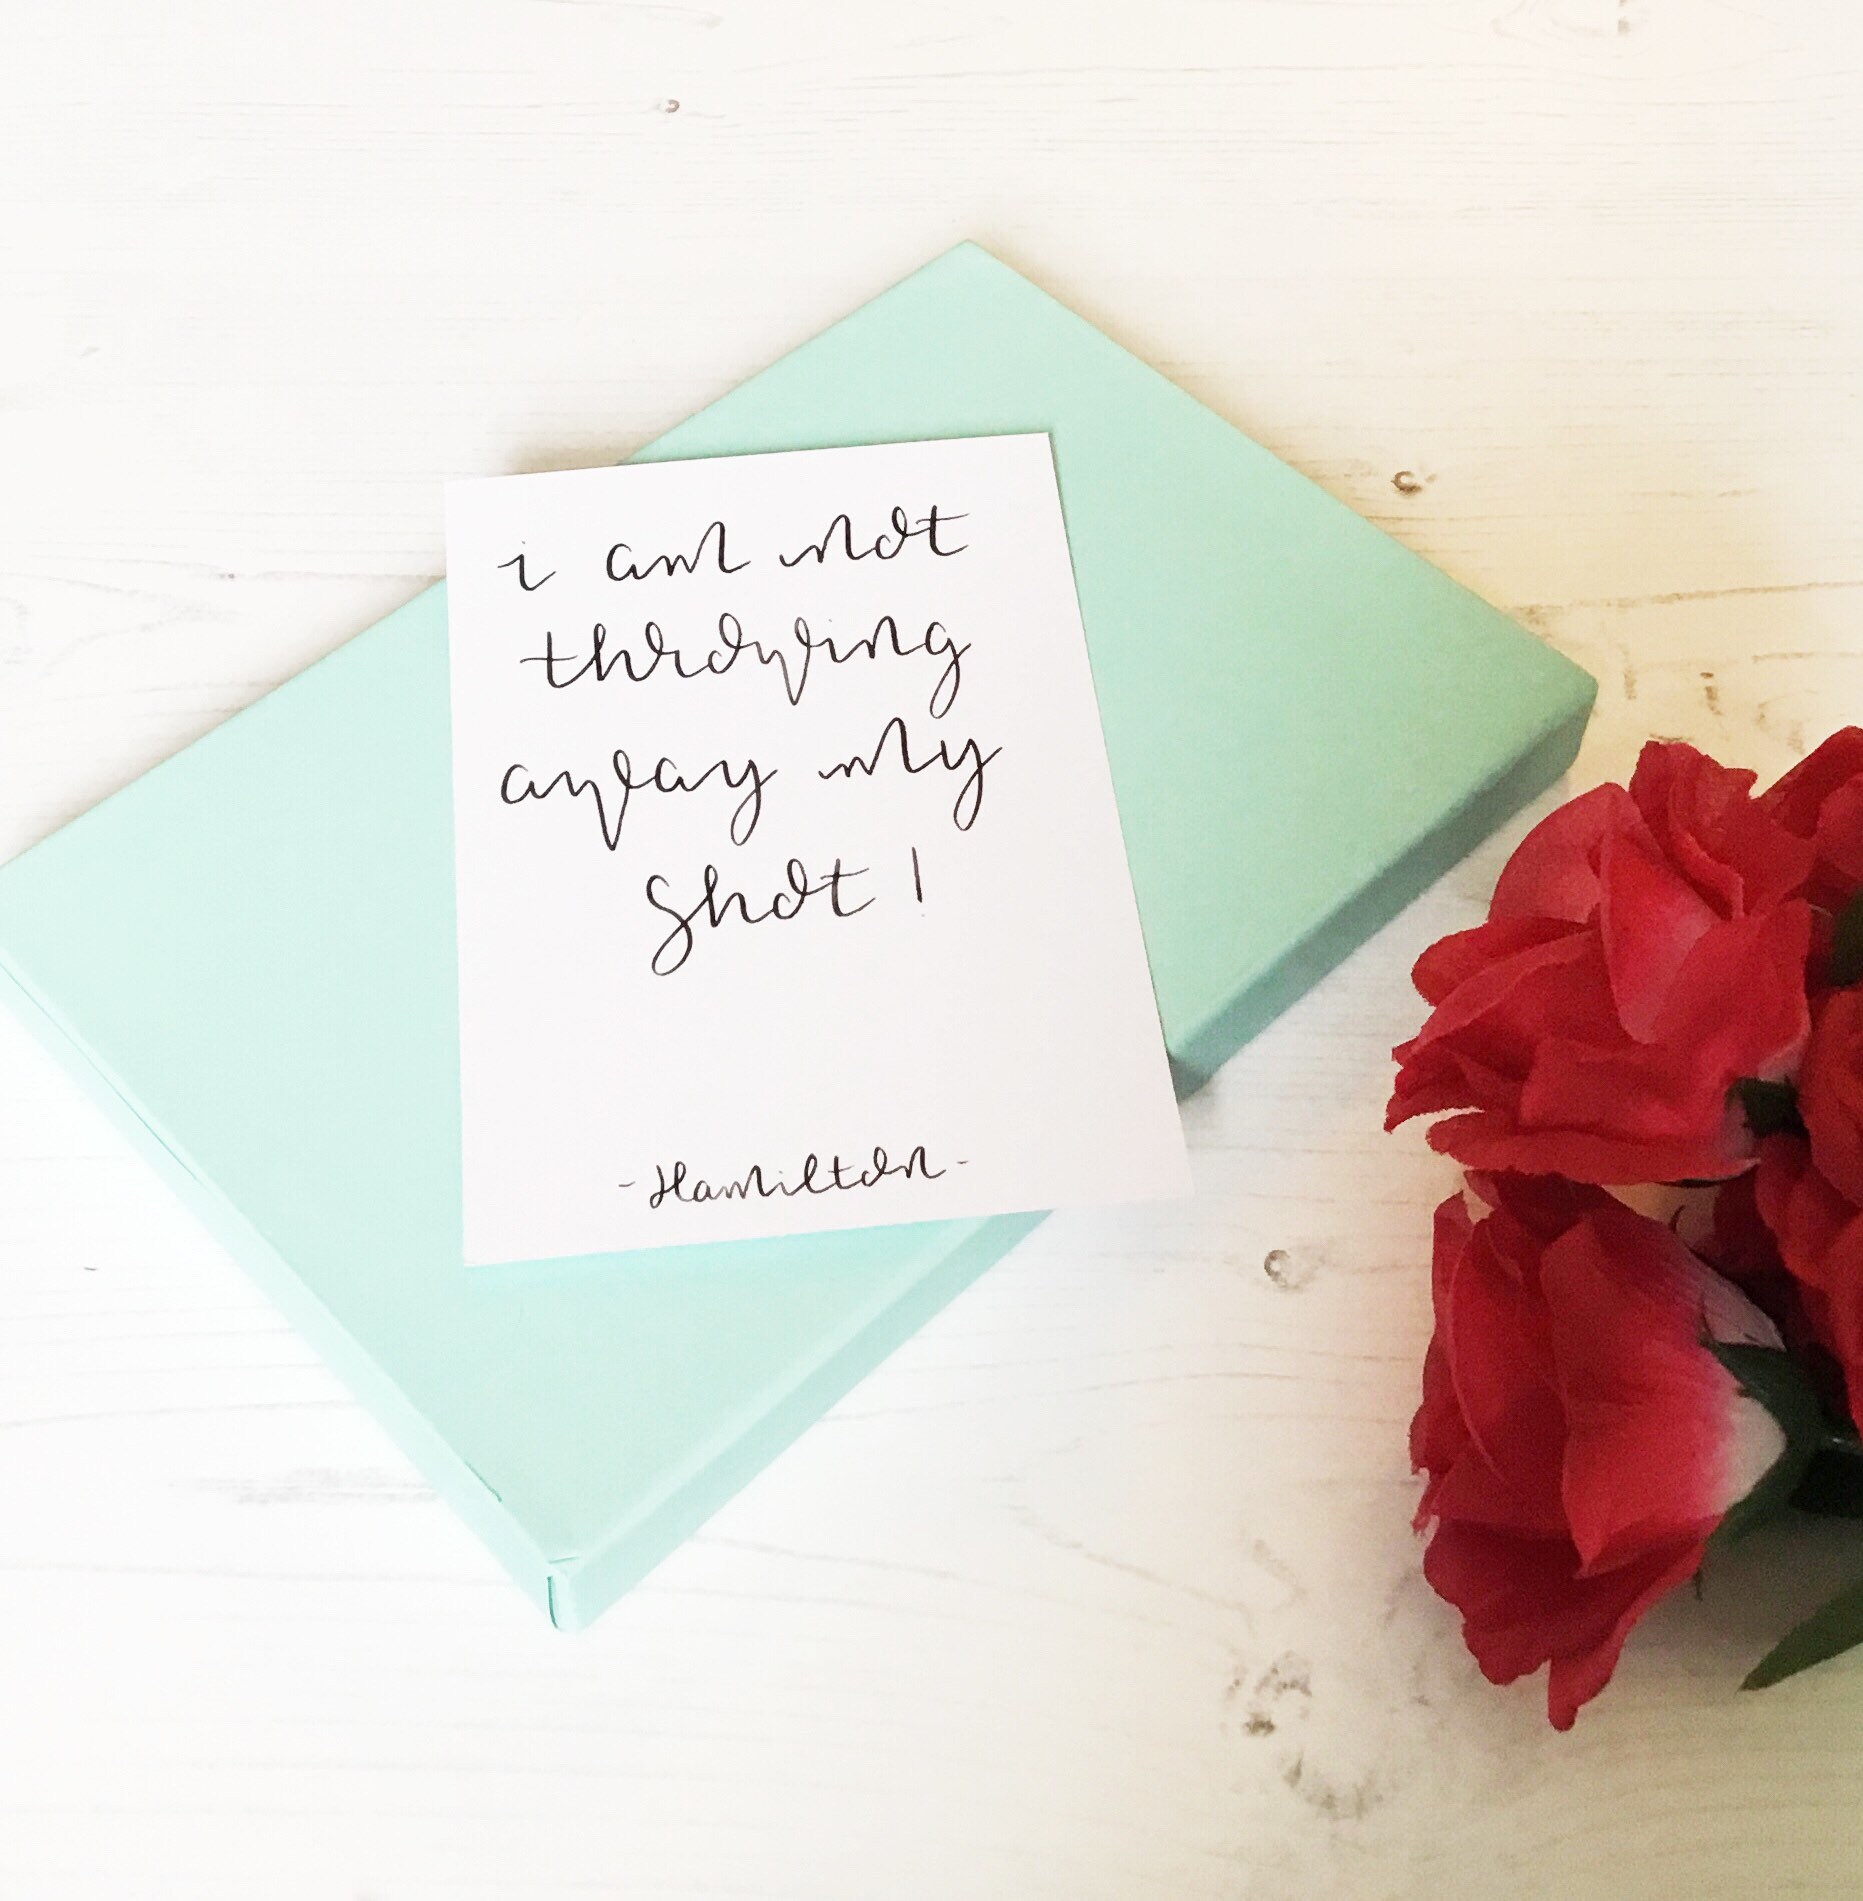 i am not
throwing
away my
shot!
-Hamilton-